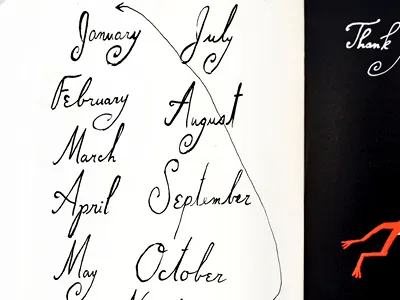 January
February
March
April
May
July
August
September
October
Thank